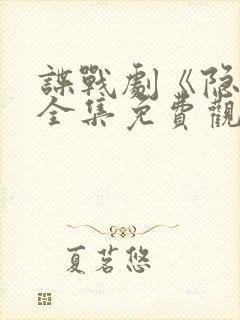 諜戰劇《隐
全集免費觀
夏茗悠